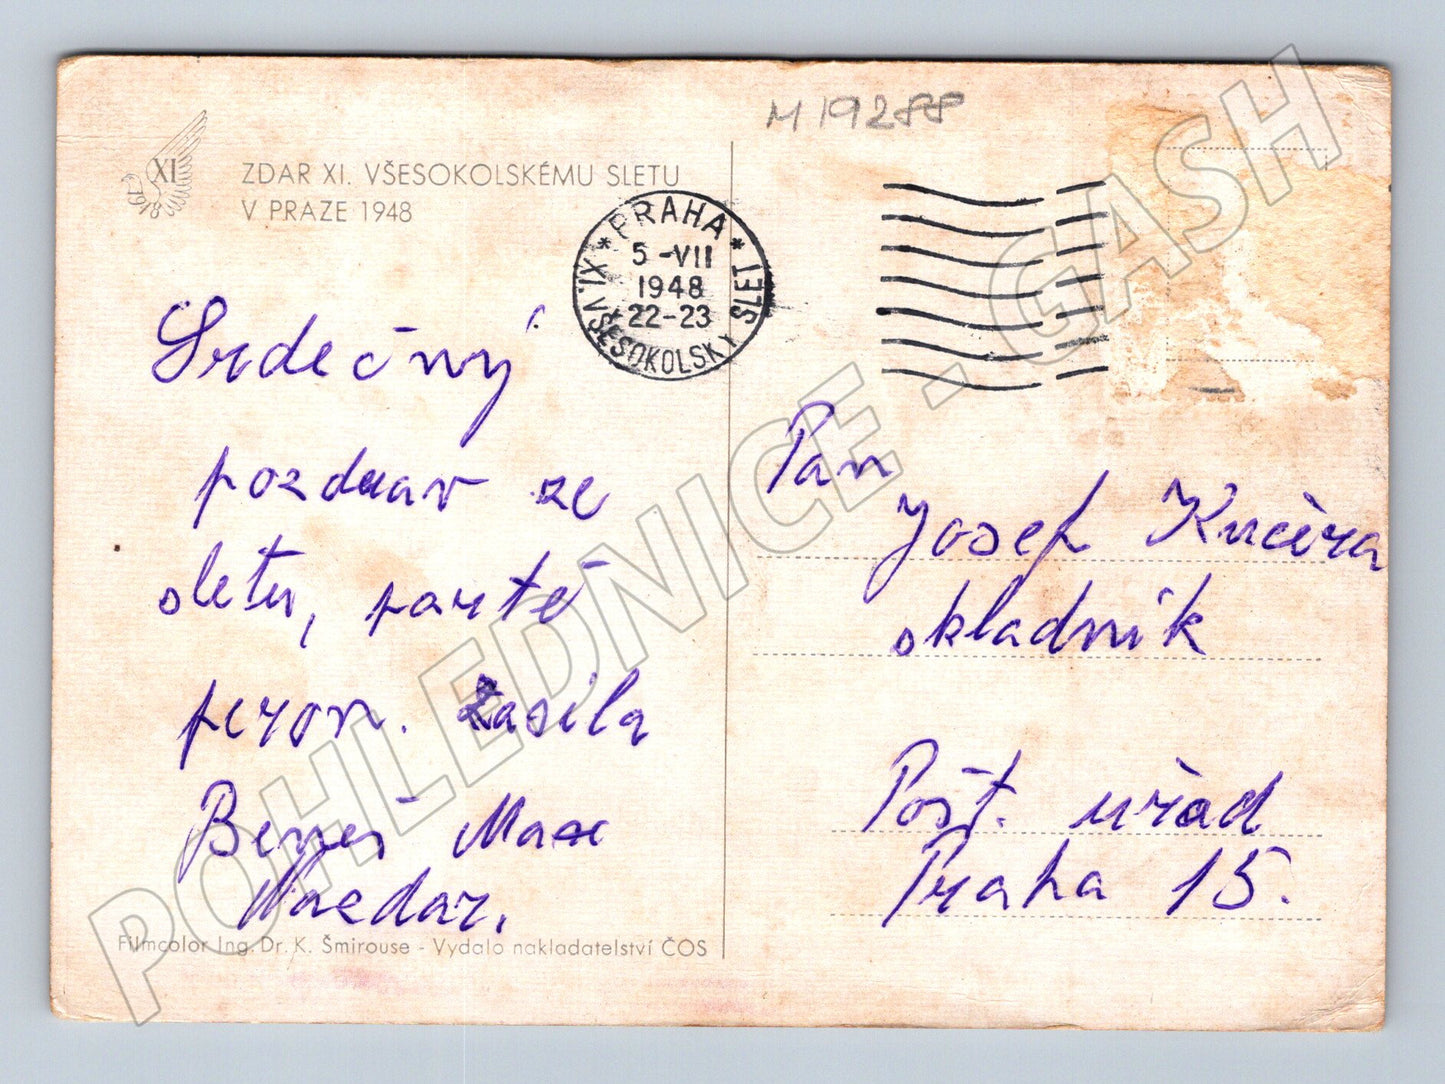 M 19288
XI
1948
ZDAR XI. VŠESOKOLSKÉMU SLETU
V PRAZE 1948
* PRAHA *
XI. VŠESOKOLSKÝ SLET
5 -VII
1948
22-23
Srdečný
pozdrav ze
sletu,
zasila
Beneš
Pan
Josef Kučera
skladník
Pošt. uřad
Praha 15.
Filmcolor Ing. Dr. K. Šmirouse - Vydalo nakladatelství ČOS
POHLEDNICE - GASH